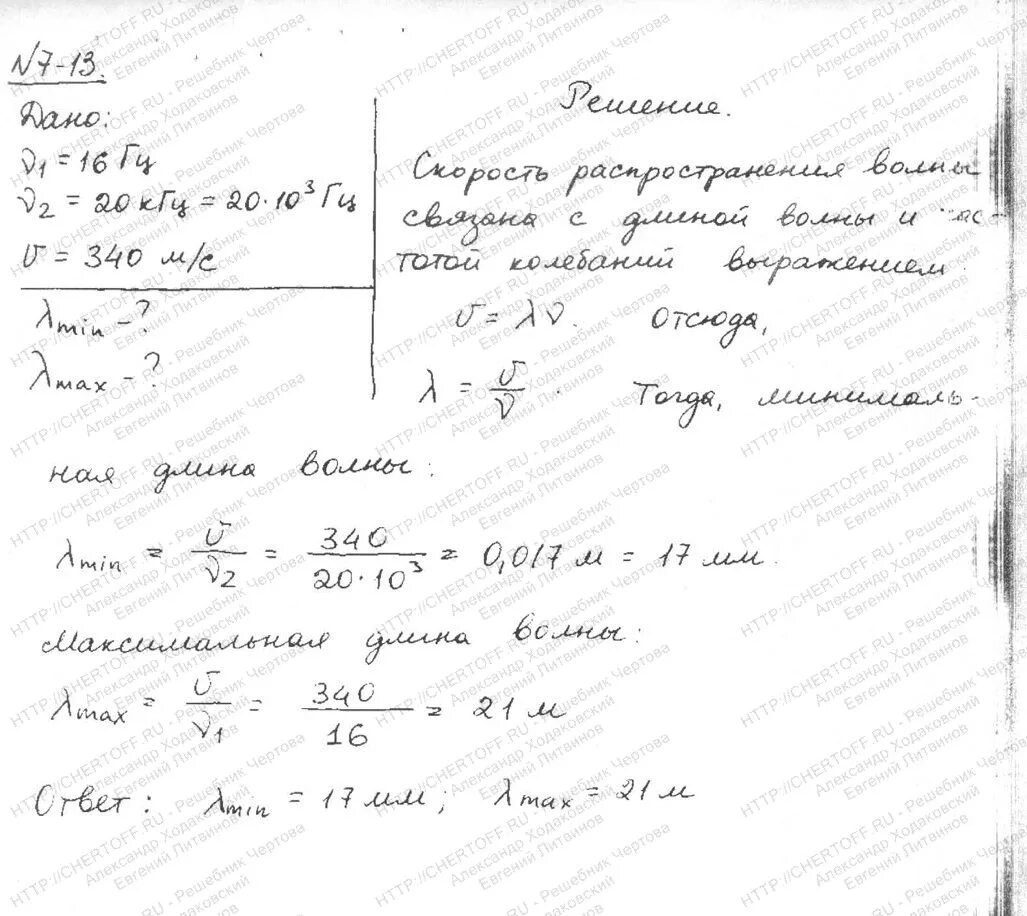 №7-13.
Дано:
ν₁ = 16 Гц
ν₂ = 20 кГц = 20·10³ Гц
υ = 340 м/с
λmin – ?
λmax – ?
Решение.
Скорость распространения волны
связана с длиной волны и час-
тотой колебаний выражением
υ = λν. Отсюда,
λ = υ/ν. Тогда, минималь-
ная длина волны:
λmin = υ/ν₂ = 340/20·10³ = 0,017 м = 17 мм.
Максимальная длина волны:
λmax = υ/ν₁ = 340/16 = 21 м
Ответ: λmin = 17 мм; λmax = 21 м
HTTP://CHERTOFF.RU - Решебник Чертова
Александр Ходаковский
Евгений Литвинов